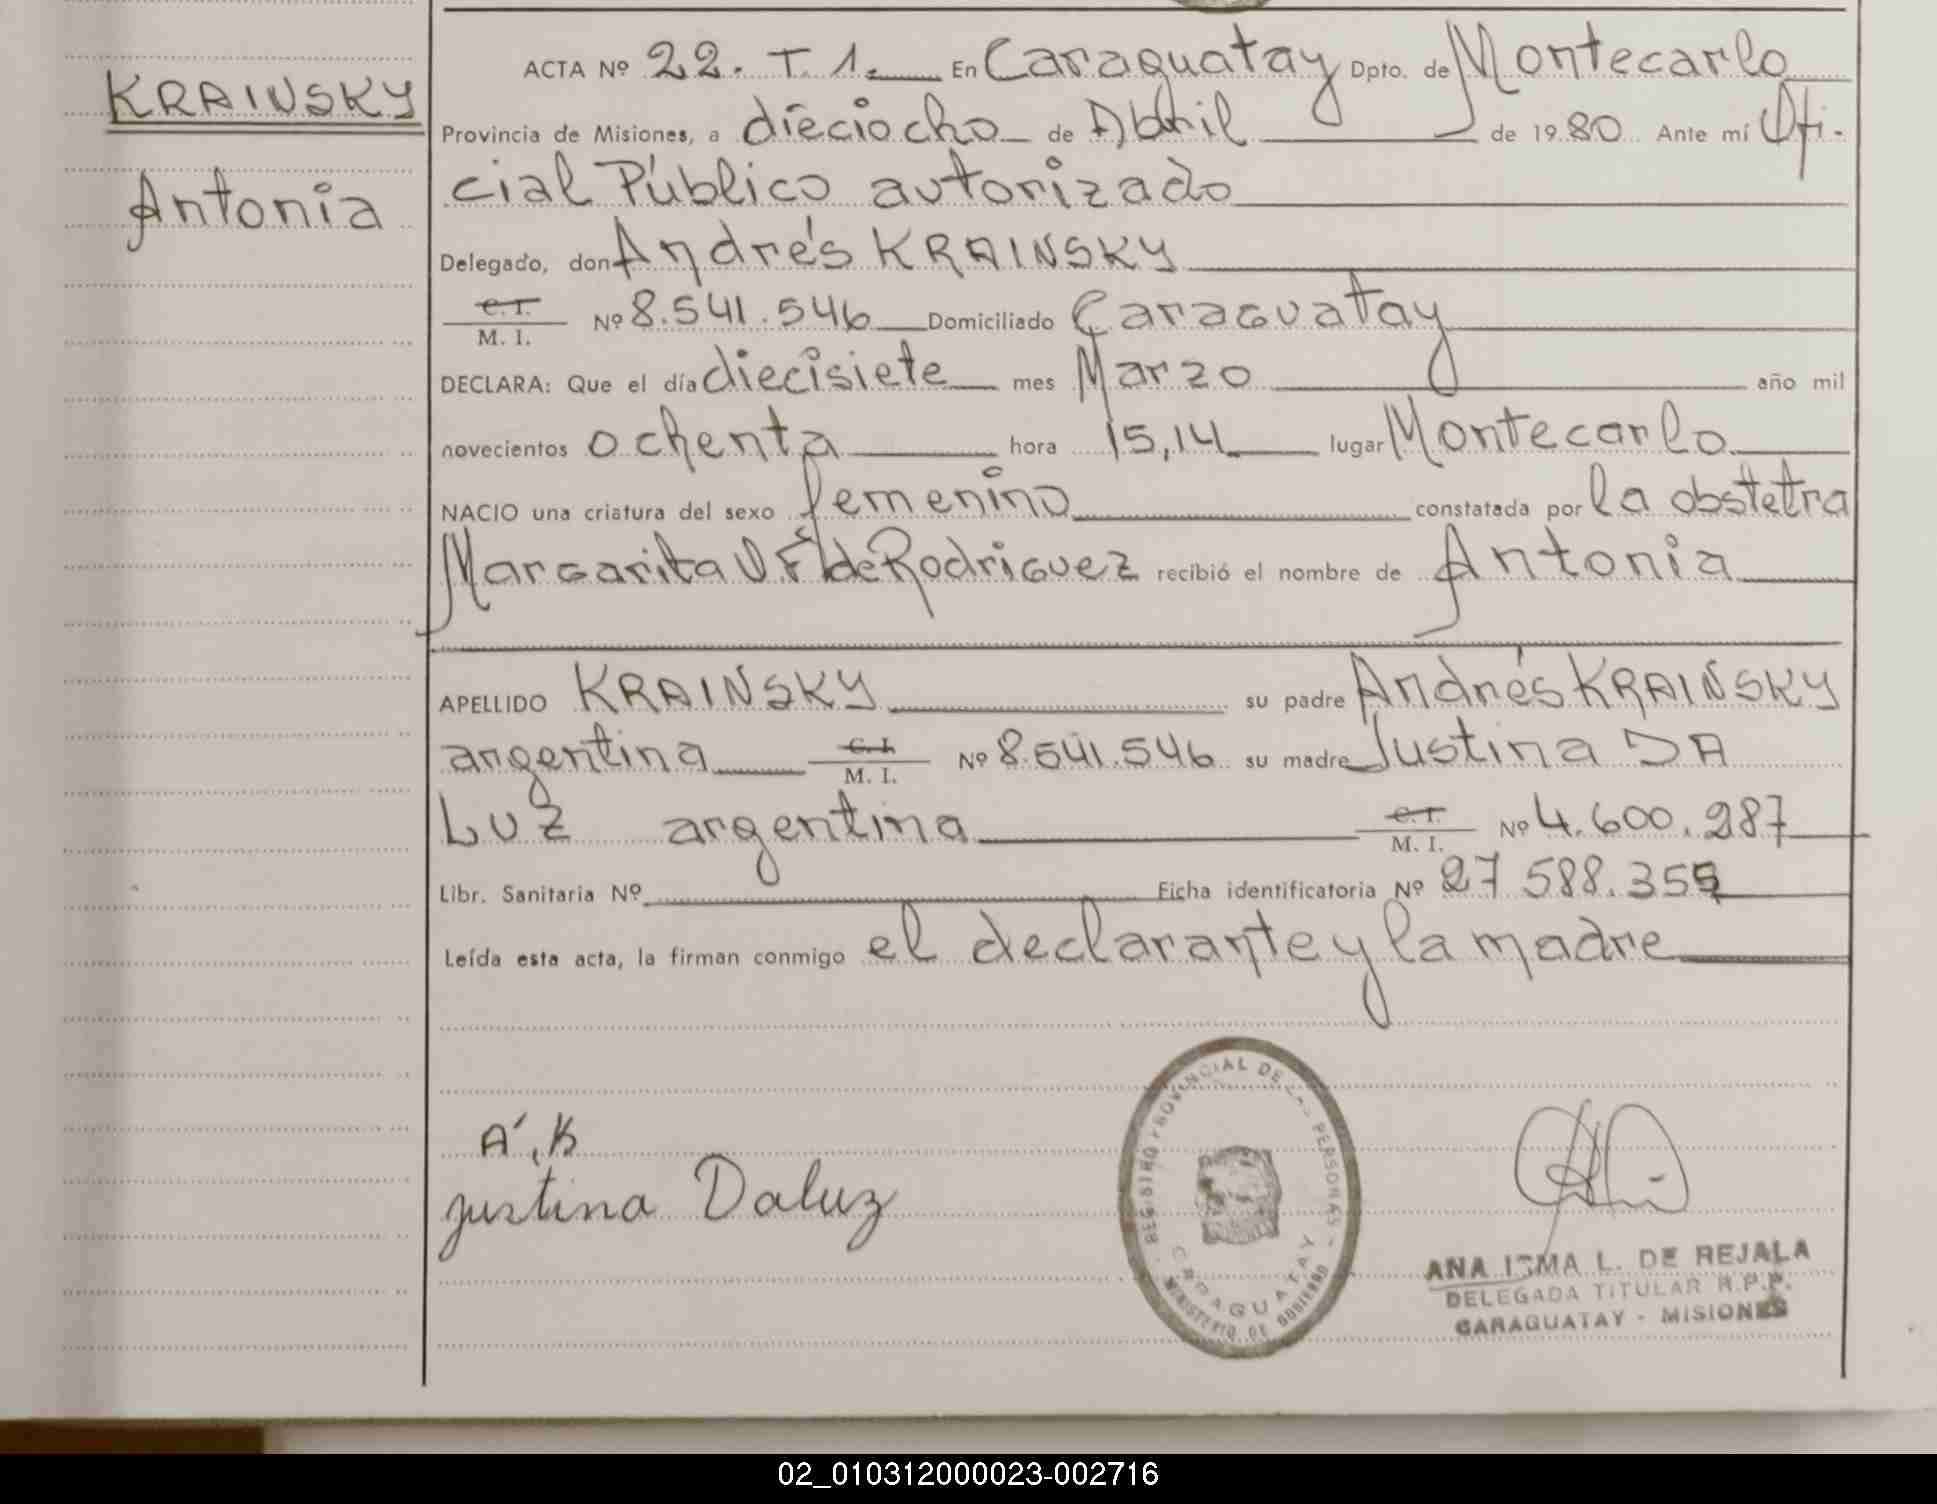 KRAINSKY
Antonia
ACTA Nº 22. T. 1. En Caraguatay Dpto. de Montecarlo
Provincia de Misiones, a dieciocho de Abril de 1980 Ante mí Ofi-
cial Público autorizado
Delegado, don Andrés KRAINSKY
C.I.
M. I. Nº 8.541.546 Domiciliado Caraguatay
DECLARA: Que el día diecisiete mes Marzo año mil
novecientos ochenta hora 15,14 lugar Montecarlo
NACIO una criatura del sexo femenino constatada por la obstetra
Margarita V F de Rodriguez recibió el nombre de Antonia
APELLIDO KRAINSKY su padre Andrés KRAINSKY
argentina C.I. M. I. Nº 8.541.546 su madre Justina DA
LUZ argentina C.I. M. I. Nº 4.600.287
Libr. Sanitaria Nº Ficha identificatoria Nº 27 588.355
Leída esta acta, la firman conmigo el declarante y la madre
A, K
justina Daluz
REGISTRO PROVINCIAL DE LAS PERSONAS
CARAGUATAY
MINISTERIO DE GOBIERNO
ANA IRMA L. DE REJALA
DELEGADA TITULAR R.P.P.
CARAGUATAY - MISIONES
02_010312000023-002716